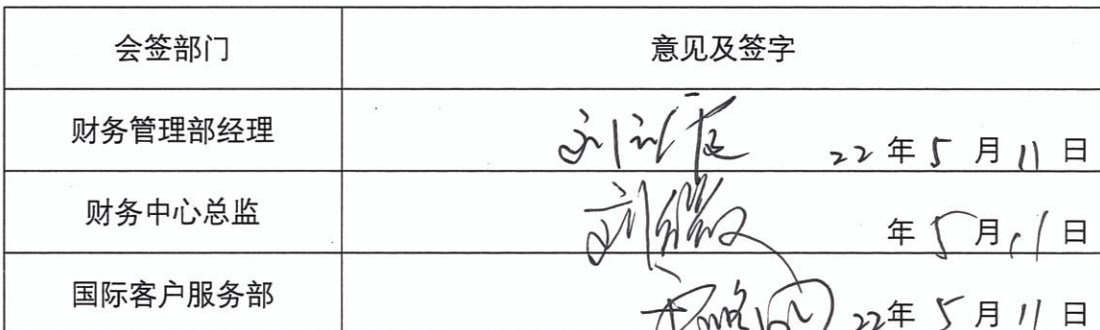 会签部门 意见及签字
财务管理部经理 22年5月11日
财务中心总监 刘 年5月11日
国际客户服务部 22年5月11日